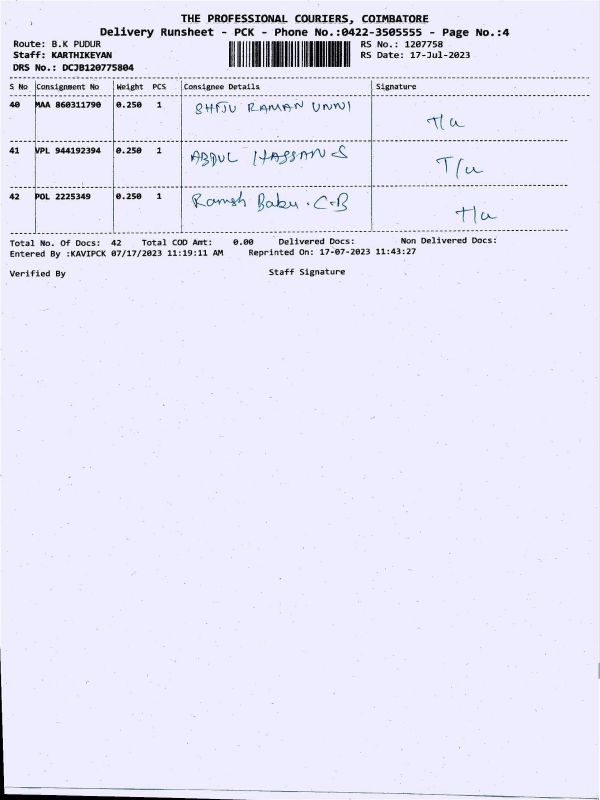 THE PROFESSIONAL COURIERS, COIMBATORE
Delivery Runsheet - PCK - Phone No.:0422-3505555 - Page No.:4
Route: B.K PUDUR RS No.: 1207758
Staff: KARTHIKEYAN RS Date: 17-Jul-2023
DRS No.: DCJB120775804
S No Consignment No Weight PCS Consignee Details Signature
40 MAA 860311790 0.250 1 SHIJU RAMAN UNNI
41 VPL 944192394 0.250 1 ABDUL HASSAN S
42 POL 2225349 0.250 1 Ramesh Babu . C.B
Total No. Of Docs: 42 Total COD Amt: 0.00 Delivered Docs: Non Delivered Docs:
Entered By :KAVIPCK 07/17/2023 11:19:11 AM Reprinted On: 17-07-2023 11:43:27
Verified By Staff Signature